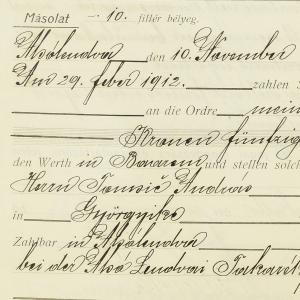 Másolat — 10. fillér bélyeg.
Alsólendva den 10. November
Am 29. feber 1912. zahlen S
an die Ordre mein
Kronen fünfzig
den Werth in Baarem und stellen solch
Herrn Tomsič Andreas
in Györgyike
Zahlbar in Alsólendva
bei der Alsó Lendvai Takarék